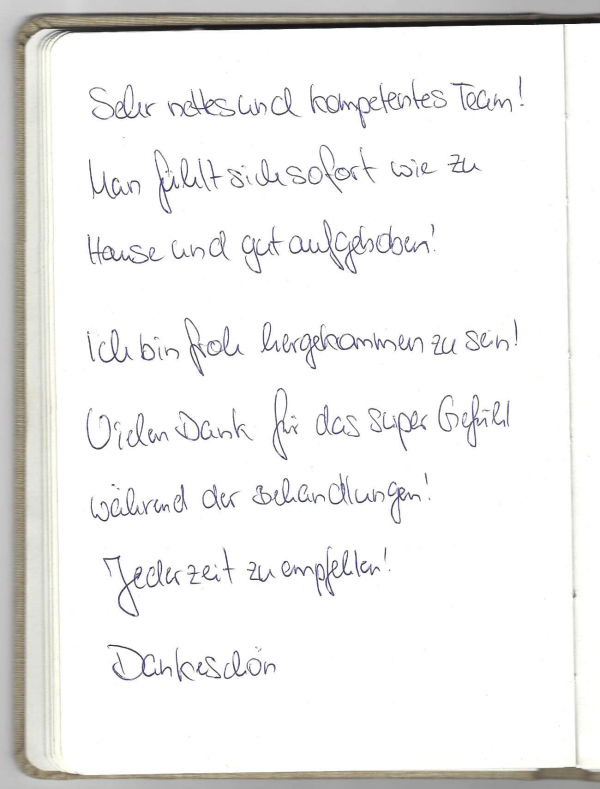 Sehr nettes und kompetentes Team!
Man fühlt sich sofort wie zu
Hause und gut aufgehoben!
Ich bin froh hergekommen zu sein!
Vielen Dank für das super Gefühl
während der Behandlungen!
Jederzeit zu empfehlen!
Dankeschön